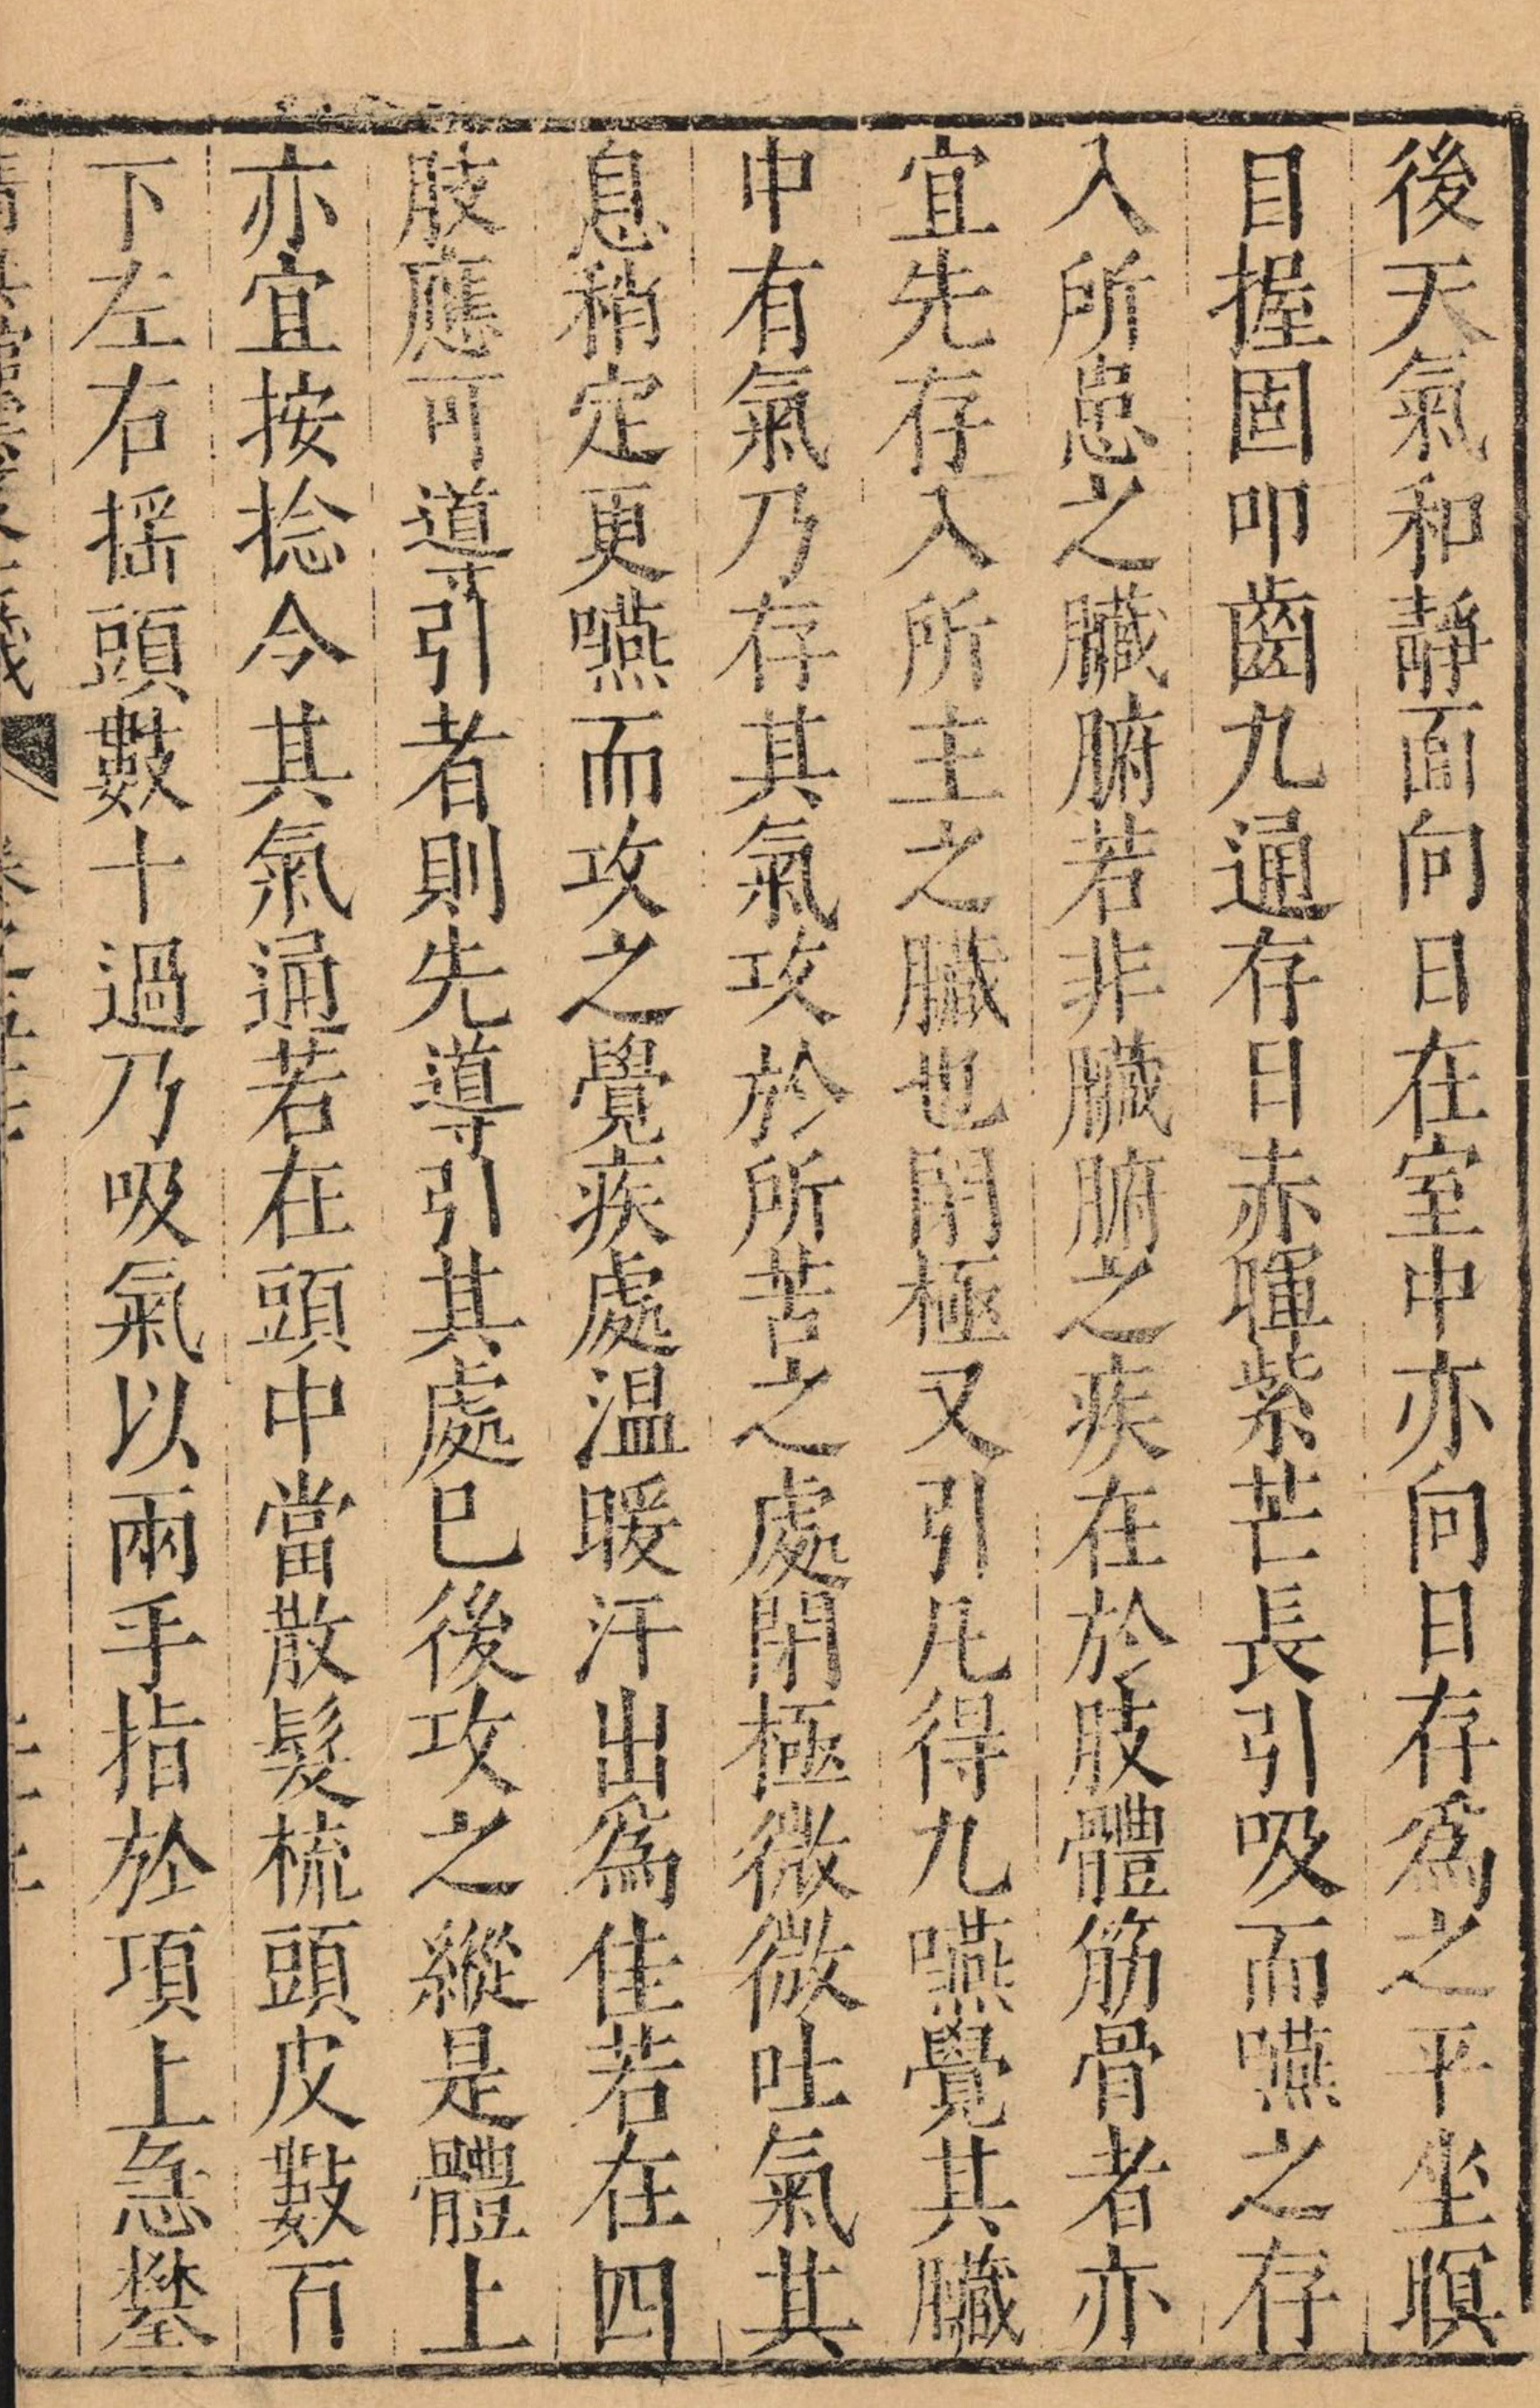 後天氣和靜面向日在室中亦向日存爲之平坐瞑
目握固叩齒九通存日赤暉紫芒長引吸而嚥之存
入所患之臟腑若非臟腑之疾在於肢體筋骨者亦
宜先存入所主之臟也閉極又引凡得九嚥覺其臟
中有氣乃存其氣攻於所苦之處閉極微微吐氣其
息稍定更嚥而攻之覺疾處温暖汗出爲佳若在四
肢應可道引者則先導引其處已後攻之縱是體上
亦宜按捻令其氣通若在頭中當散髮梳頭皮數百
下左右摇頭數十過乃吸氣以兩手指於項上急攀